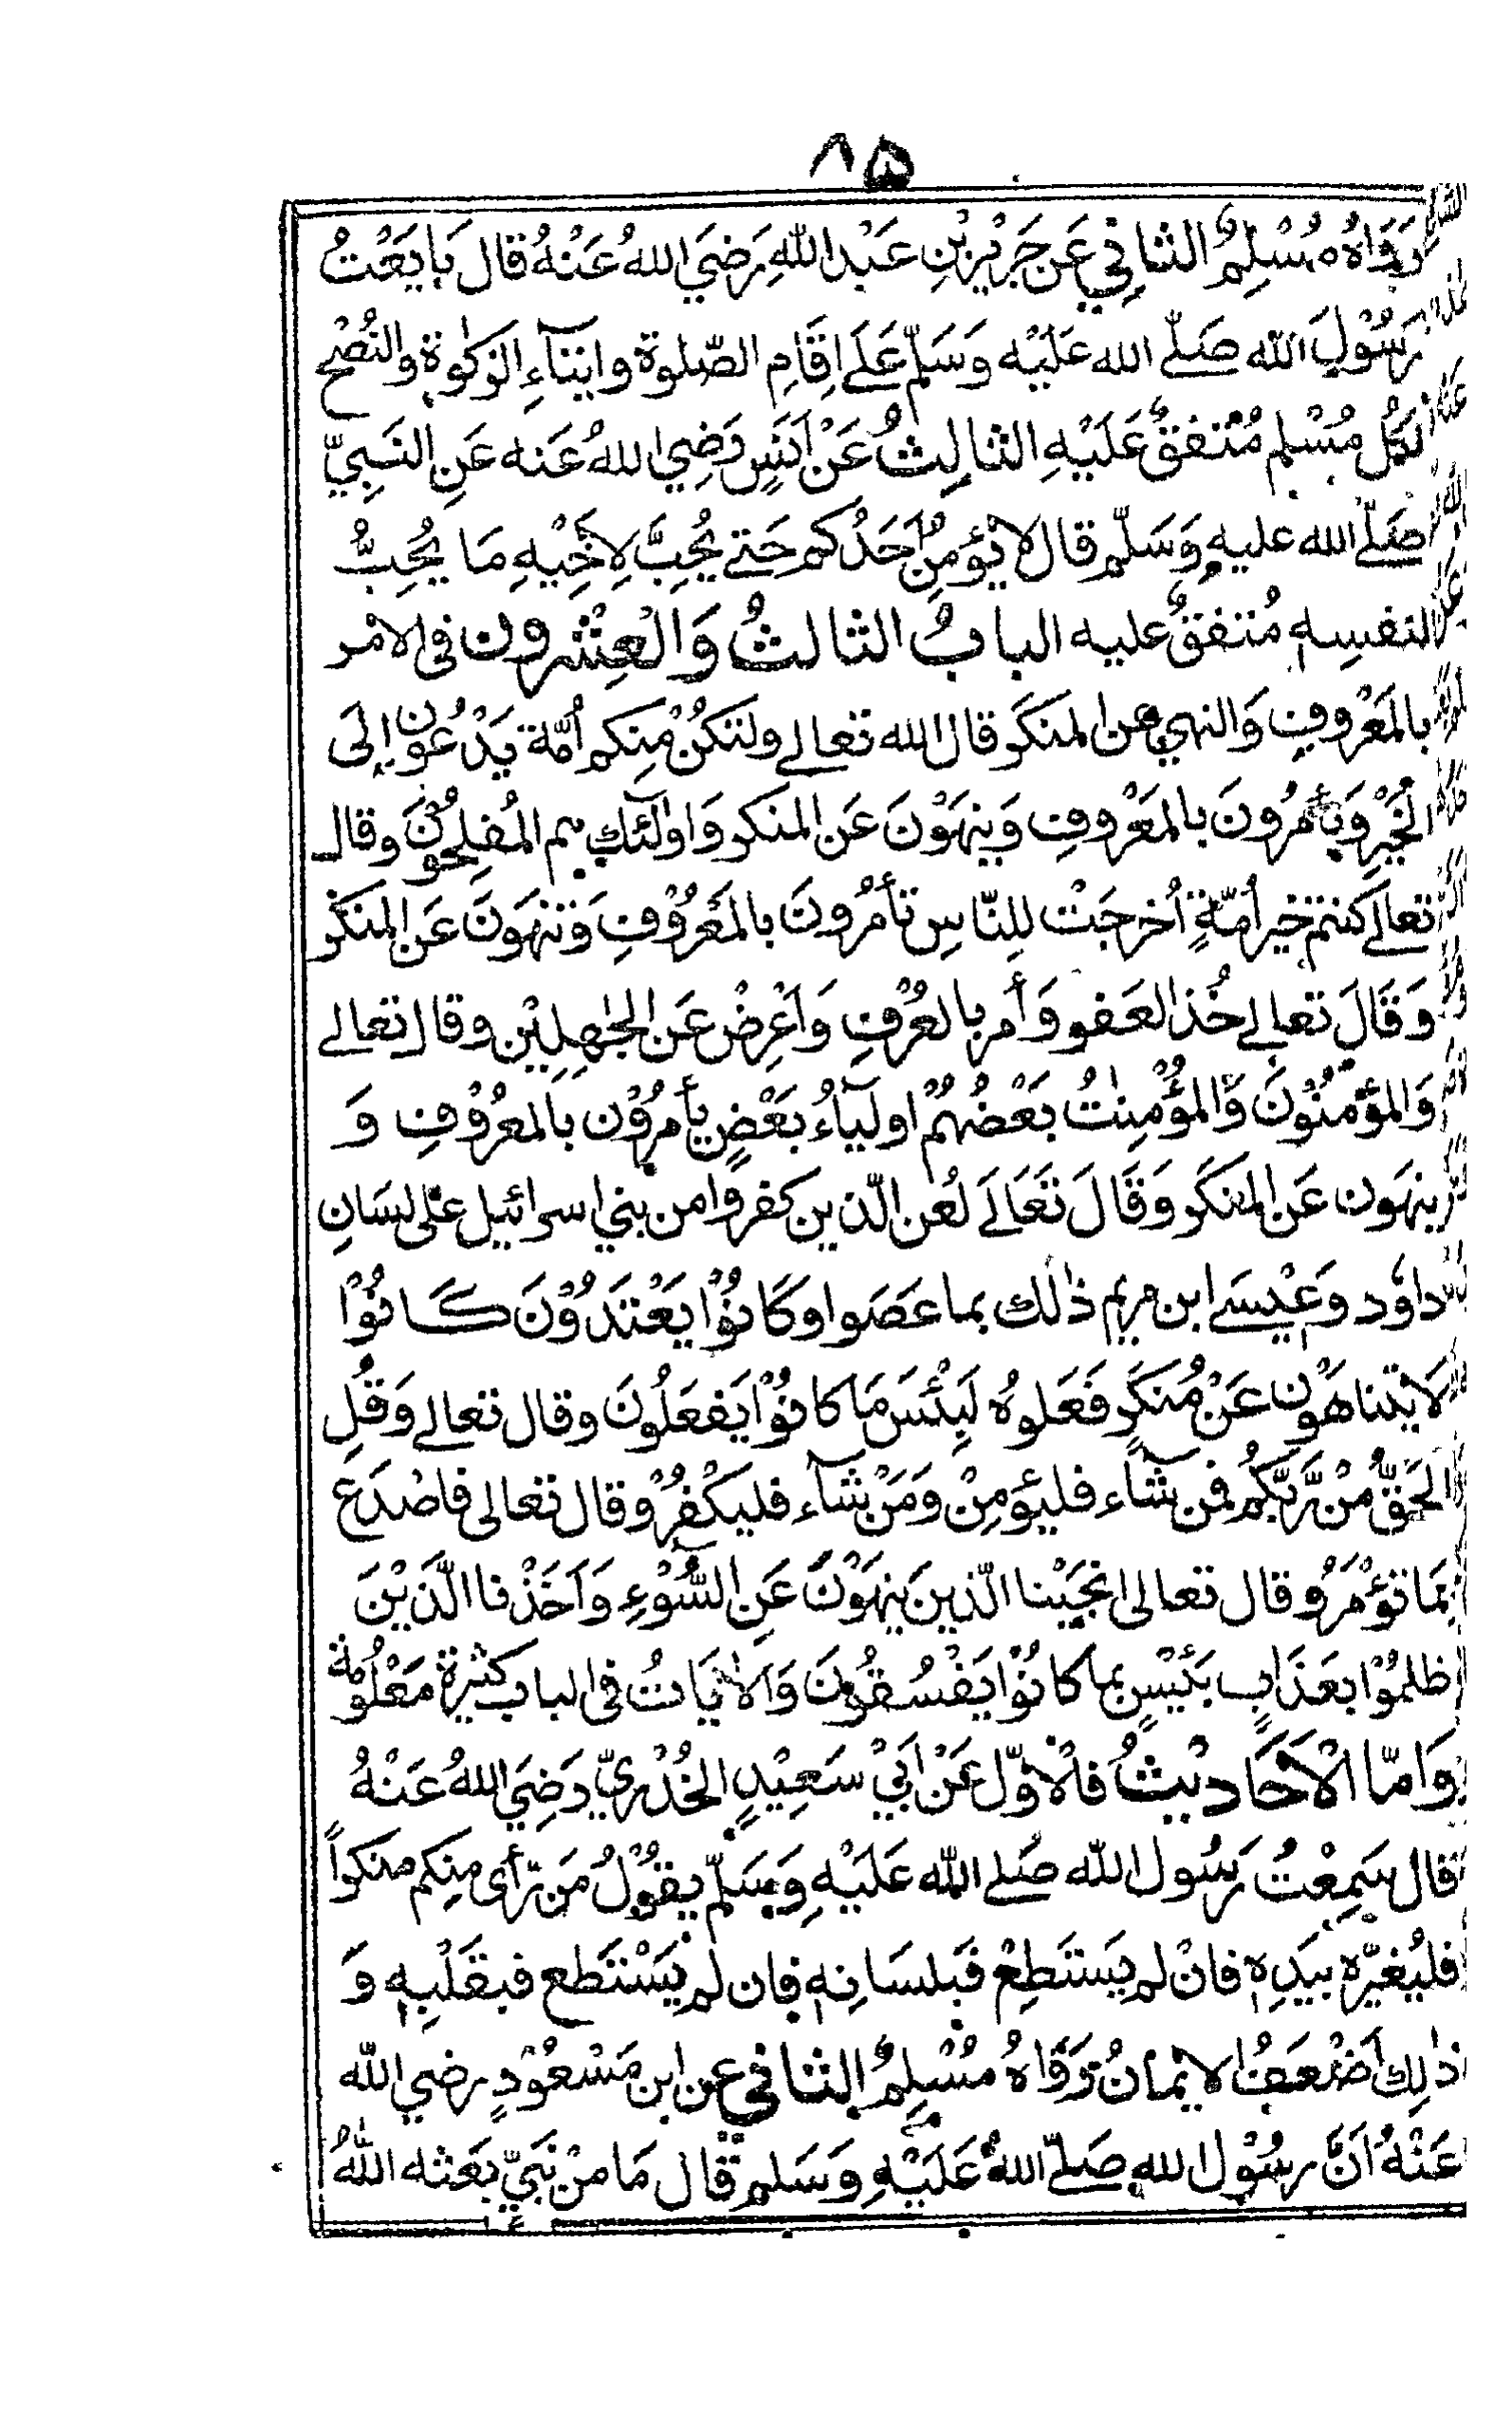 ٨٥
رَوَاهُ مُسْلِمٌ الثانِي عَن جَرِيْرِ بْنِ عَبْدِ اللهِ رَضِيَ اللهُ عَنْهُ قَال بَايَعْتُ
رَسُوْلَ الله صَلّے الله عَلَيْه وَسَلّم عَلَے اِقَامِ الصّلوة وايتَآءِ الزكٰوة والنُصْح
لِكُل مُسْلِم مُتفقٌ عَلَيْهِ الثالِثُ عَنْ اَنَسٍ رَضِيَ اللهُ عَنه عَنِ النَبِيّ
صَلّے الله عليهِ وَسَلّم قال لا يُؤمِنُ اَحَدُكم حَتے يُحِبَّ لِاَخِيْهِ مَا يُحِبُّ
لنفسِهٖ مُتفقٌ عليه البابُ الثالثُ وَالْعِشْرون فى الامْر
بالمَعْروفِ وَالنهيِ عن المنكَر قال الله تعالے ولتكُنْ مِنكم اُمّة يَدْعُون اِلَى
الْخَيْرِ وَيَأمُرُونَ بالمَعْروفِ وَيَنهَوْنَ عَن المنكر وَاولٰئكَ هم المُفلِحُوْنَ وقال
تعالےٰ كنتم خير اُمّةٍ اُخرجَتْ لِلنّاسِ تَأمُرُونَ بالمَعْرُوْفِ وَتنهَوْنَ عَنِ المنكَر
وَقَالَ تعالے خُذ العَفو وَأمر بالعُرْفِ وَاَعْرِضْ عَن الجٰهِلِيْن وقال تعالے
وَالمؤمِنُوْنَ وَالمُؤْمِنٰتُ بَعْضُهُمْ اولَيَآءُ بَعْضٍ يأمرُوْن بالمعْرُوْفِ وَ
يَنهَون عَن المنكَر وَقَالَ تَعَالَے لُعن الّذين كفروا من بني اسرائيل عَلٰى لِسَانِ
داوٗد وَعِيْسَے ابن مريم ذٰلك بما عَصَوا وكَانُوْا يَعْتَدُوْنَ كَانُوْا
لَا يَتناهَوْن عَنْ مُنكَرٍ فَعَلوهُ لَبِئْسَ مَا كانُوْا يَفعَلُونَ وقال تعالے وَقُلِ
الْحَقُّ مِنْ رَّبّكُم فمن شآء فليؤمِنْ وَمَنْ شآء فليكْفُرْ وقال تعالى فاصْدَع
بِمَا تؤْمَر وقال تعالى انجَيْنا الّذين يَنهَوْنَ عَنِ السُّوْءِ وَاَخَذْنا الَّذيْنَ
ظلمُوْا بعَذَابٍ بَئيْسٍ بما كانُوْا يَفْسُقُونَ وَالاٰيَاتُ فى الباب كثيرة مَعْلُومة
وَامّا الْاَحَاديْثُ فالْاوّل عَنْ اَبيْ سَعِيْدٍ الخُدْرِيّ رَضِيَ اللهُ عَنْهُ
قال سَمِعْتُ رَسُول الله صَلے الله عَلَيْهِ وَسَلّم يقُوْلُ مَن رّأى منِكم منكراً
فليُغيّره بيَدِهٖ فانْ لم يَستَطِعْ فَبلسَانِهٖ فان لم يَسْتَطع فبقَلْبِهٖ وَ
ذٰلِك اَضْعَفُ الايمَانُ رَوَاهُ مُسْلِمٌ الثانى عن ابن مَسْعُوْدٍ رضي الله
عَنْهُ اَنَّ رسُوْل اللهِ صَلّے اللهُ عَلَيْهِ وَسَلم قَال مَا مِنْ نَبِيّ بَعَثه اللهُ